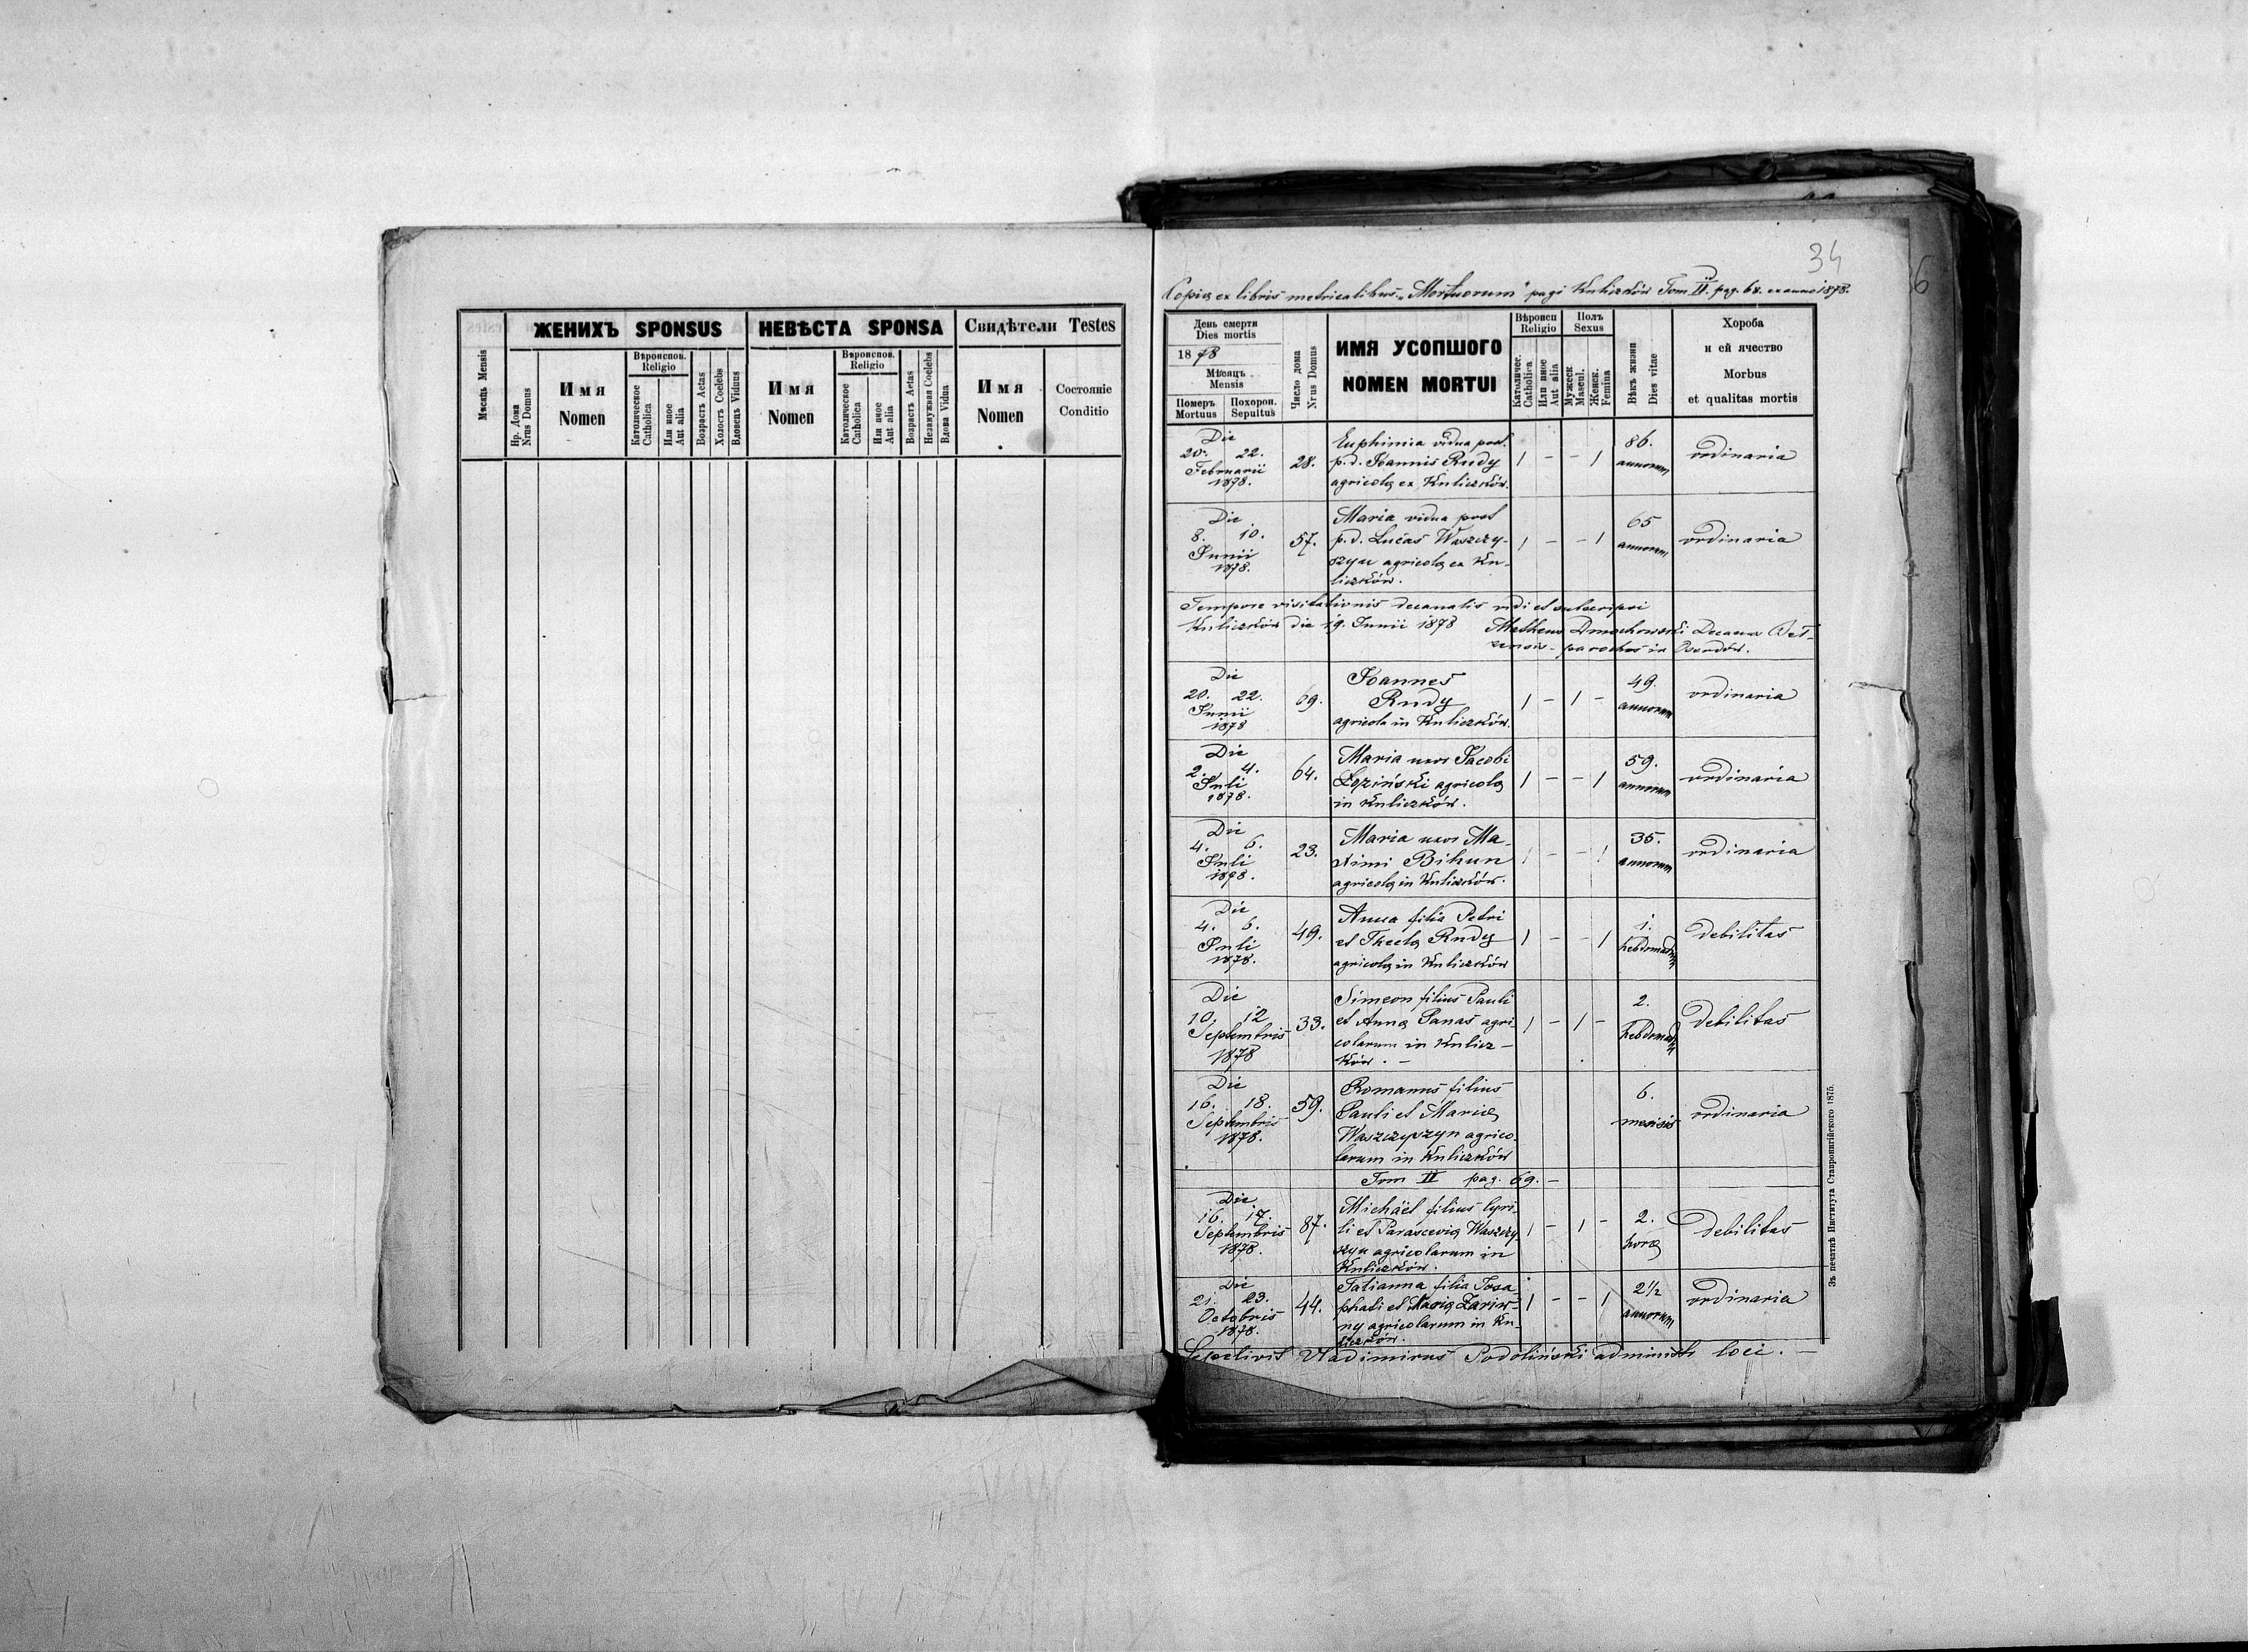 ЖЕНИХЪ SPONSUS
НЕВѢСТА SPONSA
Свидѣтели Testes
Мѣсяць Mensis
Нр. Дома
Nrus Domus
Имя
Nomen
Вѣроиспов.
Religio
Католическое
Catholica
Или иное
Aut alia
Возрастъ Aetas
Холостъ Coelebs
Вдовець Viduus
Имя
Nomen
Вѣроиспов.
Religio
Католическое
Catholica
Или иное
Aut alia
Возрастъ Aetas
Незамужная Coelebs
Вдова Vidua
Имя
Nomen
Состояніе
Conditio
34
6
Copia ex libris metricalibus "Mortuorum" pagi Kuliczków Tom II. pag. 68. ex anno 1878.
День смерти
Dies mortis
1878
Мѣсяцъ
Mensis
Померъ
Mortuus
Похорон.
Sepultus
Число дома
Nrus Domus
ИМЯ УСОПШОГО
NOMEN MORTUI
Вѣроисп
Religio
Католичес.
Catholica
Или иное
Aut alia
Полъ
Sexus
Мужеск
Mascul.
Женск.
Femina
Вѣкъ жизни
Dies vitae
Хороба
и ей ячество
Morbus
et qualitas mortis
Die
20. 22.
Februarii
1878.
28.
Euphimia vidua post
p.d. Joannis Rudy
agricola ex Kuliczków.
1 - - 1
86.
annorum
ordinaria
Die
8. 10.
Junii
1878.
57.
Maria vidua post
p.d. Lucas Waszczy-
szyn agricola ex Ku-
liczków.
1 - - 1
65
annorum
ordinaria
Tempore visitationis decanalis vidi et subscripsi
Kuliczków die 19. Junii 1878
Decanus
parochus in
Die
20. 22.
Junii
1878
69.
Joannes
Rudy
agricola in Kuliczków.
1 - 1 -
49.
annorum
ordinaria
Die
2. 4.
Juli
1878.
64.
Maria uxor Jacobi
Łoziński agricola
in Kuliczków.
1 - - 1
59.
annorum
ordinaria
Die
4. 6.
Juli
1878.
23.
Maria uxor Ma-
ximi Bihun
agricola in Kuliczków.
1 - - 1
35.
annorum
ordinaria
Die
4. 6.
Juli
1878.
49.
Anna filia Petri
et Thecla Rudy
agricola in Kuliczków
1 - - 1
1.
debilitas
Die
10. 12
Septembris
1878
33.
Simeon filius Pauli
et Anna Panas agri-
colarum in Kulicz-
ków. -
1 - 1 -
2.
debilitas
Die
16. 18.
Septembris
1878.
59.
Romanus filius
Pauli et Maria
Waszczyszyn agrico-
larum in Kuliczków
6.
mensis
ordinaria
Tom II pag. 69. -
Die
16. 17.
Septembris
1878.
87.
Michaël filius Cyri-
li et Parascevia Waszczy-
szyn agricolarum in
Kuliczków.
1 - 1 -
2.
hora
debilitas
Die
21. 23.
Octobris
1878.
44.
Tatianna filia Josa-
phati et Maria Zariw-
ny agricolarum in Ku-
liczków.
1 - - 1
2½
annorum
ordinaria
Sepelivit Wladimirus Podoliński administr loci. -
Зъ печатнѣ Института Ставропигійского 1875.